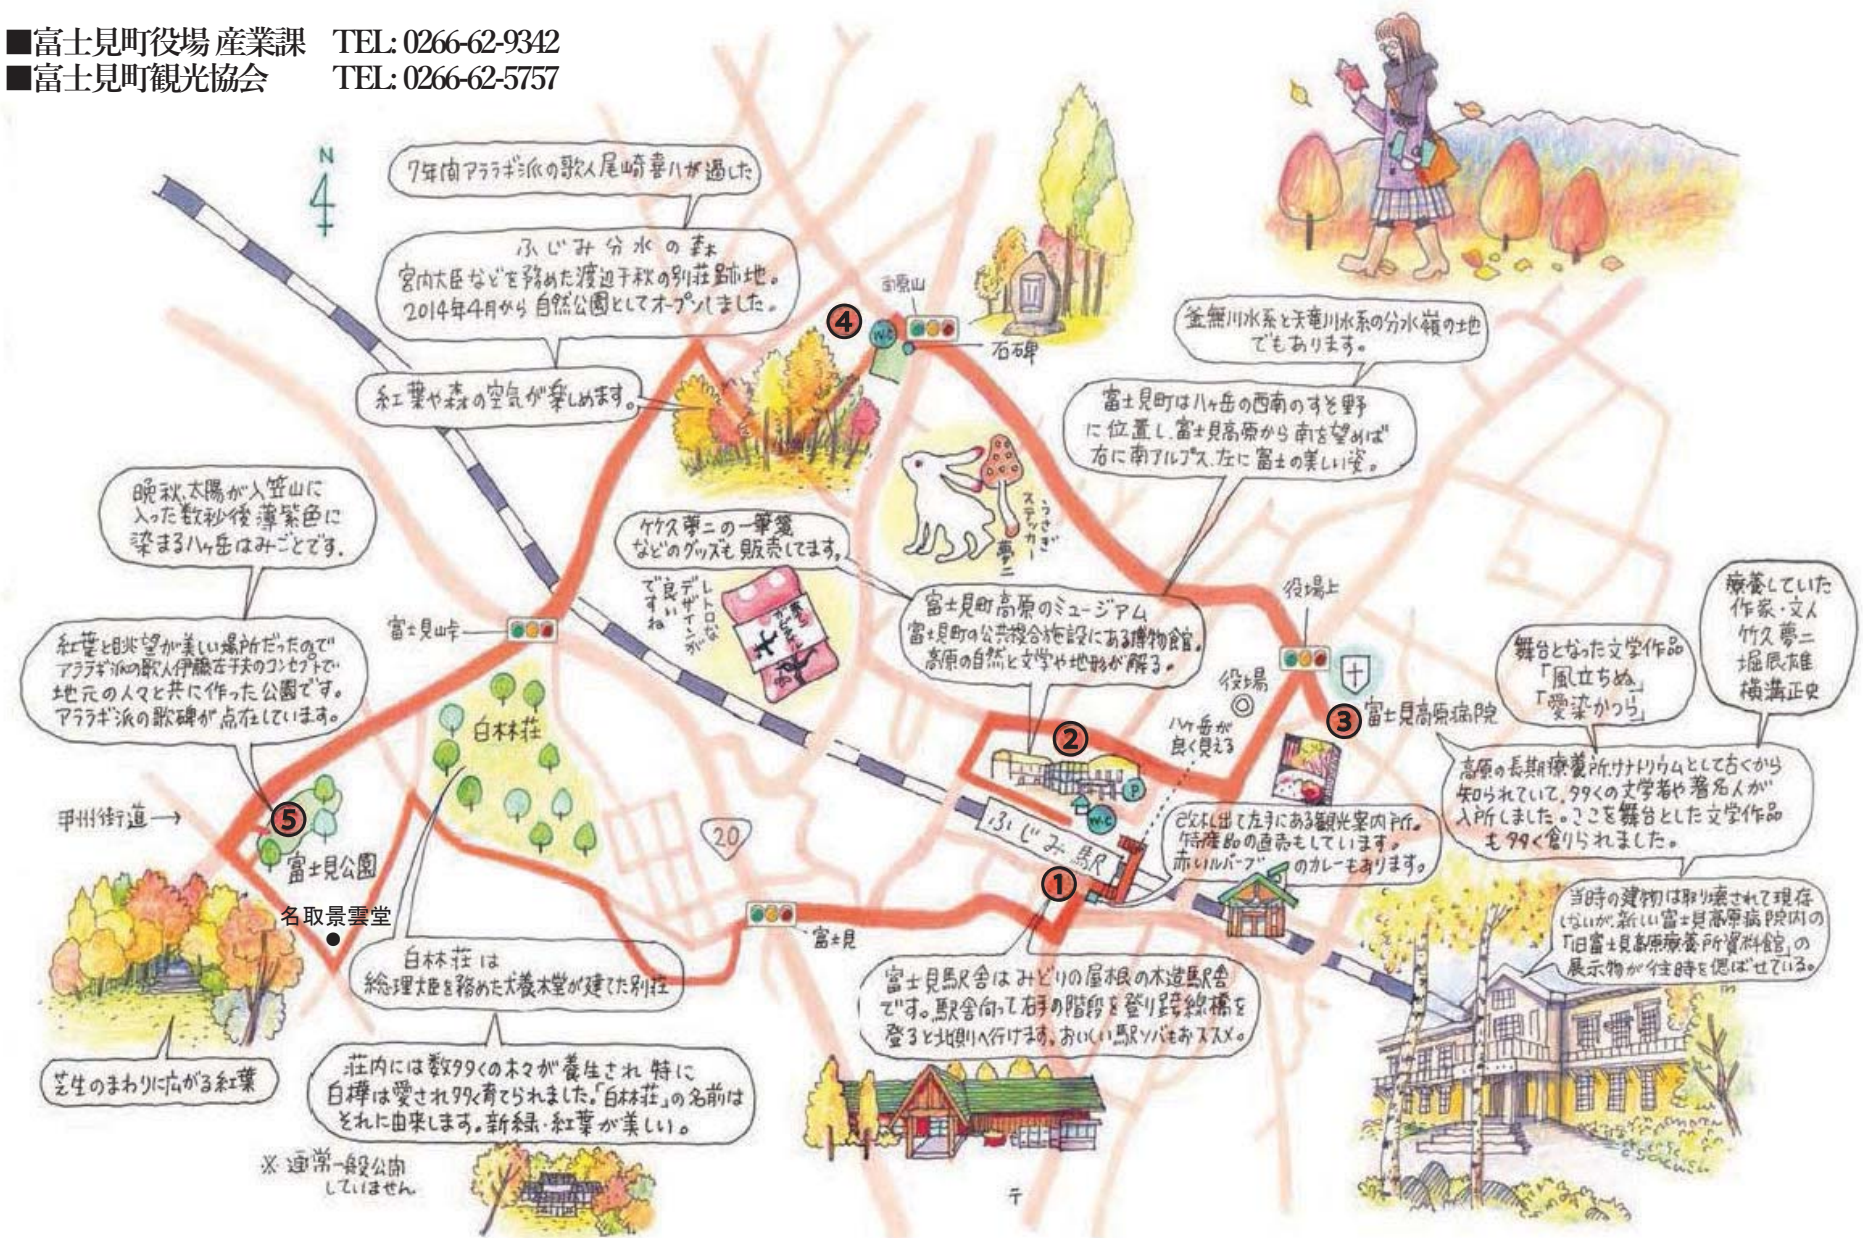 ■富士見町役場 産業課 TEL: 0266-62-9342
■富士見町観光協会 TEL: 0266-62-5757
N
7年間アララギ派の歌人尾崎喜八が過した
ふじみ分水の森
宮内大臣などを務めた渡辺千秋の別荘跡地。
2014年4月から自然公園としてオープンしました。
紅葉や森の空気が楽しめます。
④
W.C
南原山
石碑
釜無川水系と天竜川水系の分水嶺の地
でもあります。
富士見町は八ヶ岳の西南のすそ野
に位置し、富士見高原から南を望めば
右に南アルプス、左に富士の美しい姿。
晩秋、太陽が入笠山に
入った数秒後薄紫色に
染まる八ヶ岳はみごとです。
紅葉と眺望が美しい場所だったので
アララギ派の歌人伊藤左千夫のコンセプトで
地元の人々と共に作った公園です。
アララギ派の歌碑が点在しています。
富士見峠
竹久夢二の一筆箋
などのグッズも販売してます。
レトロな
デザインが
良いね
ですね
うさぎ
ステッカー
夢二
富士見町高原のミュージアム
富士見町の公共複合施設にある博物館。
高原の自然と文学や地形が解る。
役場上
役場
八ヶ岳が
良く見える
②
P
W.C
③
富士見高原病院
舞台となった文学作品
「風立ちぬ」
「愛染かつら」
療養していた
作家・文人
竹久夢二
堀辰雄
横溝正史
高原の長期療養所サナトリウムとして古くから
知られていて、多くの文学者や著名人が
入所しました。ここを舞台とした文学作品
も多く創られました。
当時の建物は取り壊されて現存
しないが、新しい富士見高原病院内の
「旧富士見高原療養所資料館」の
展示物が往時を偲ばせている。
改札出て左手にある観光案内所。
特産品の直売もしています。
赤いルバーブのカレーもあります。
ふじみ駅
①
白林荘
20
甲州街道→
⑤
富士見公園
名取景雲堂
富士見
白林荘は
総理大臣を務めた犬養木堂が建てた別荘
荘内には数多くの木々が養生され特に
白樺は愛され多く育てられました。「白林荘」の名前は
それに由来します。新緑・紅葉が美しい。
※通常一般公開
していません
芝生のまわりに広がる紅葉
富士見駅舎はみどりの屋根の木造駅舎
です。駅舎向って右手の階段を登り跨線橋を
登ると北側へ行けます。おいしい駅ソバもおススメ。
〒